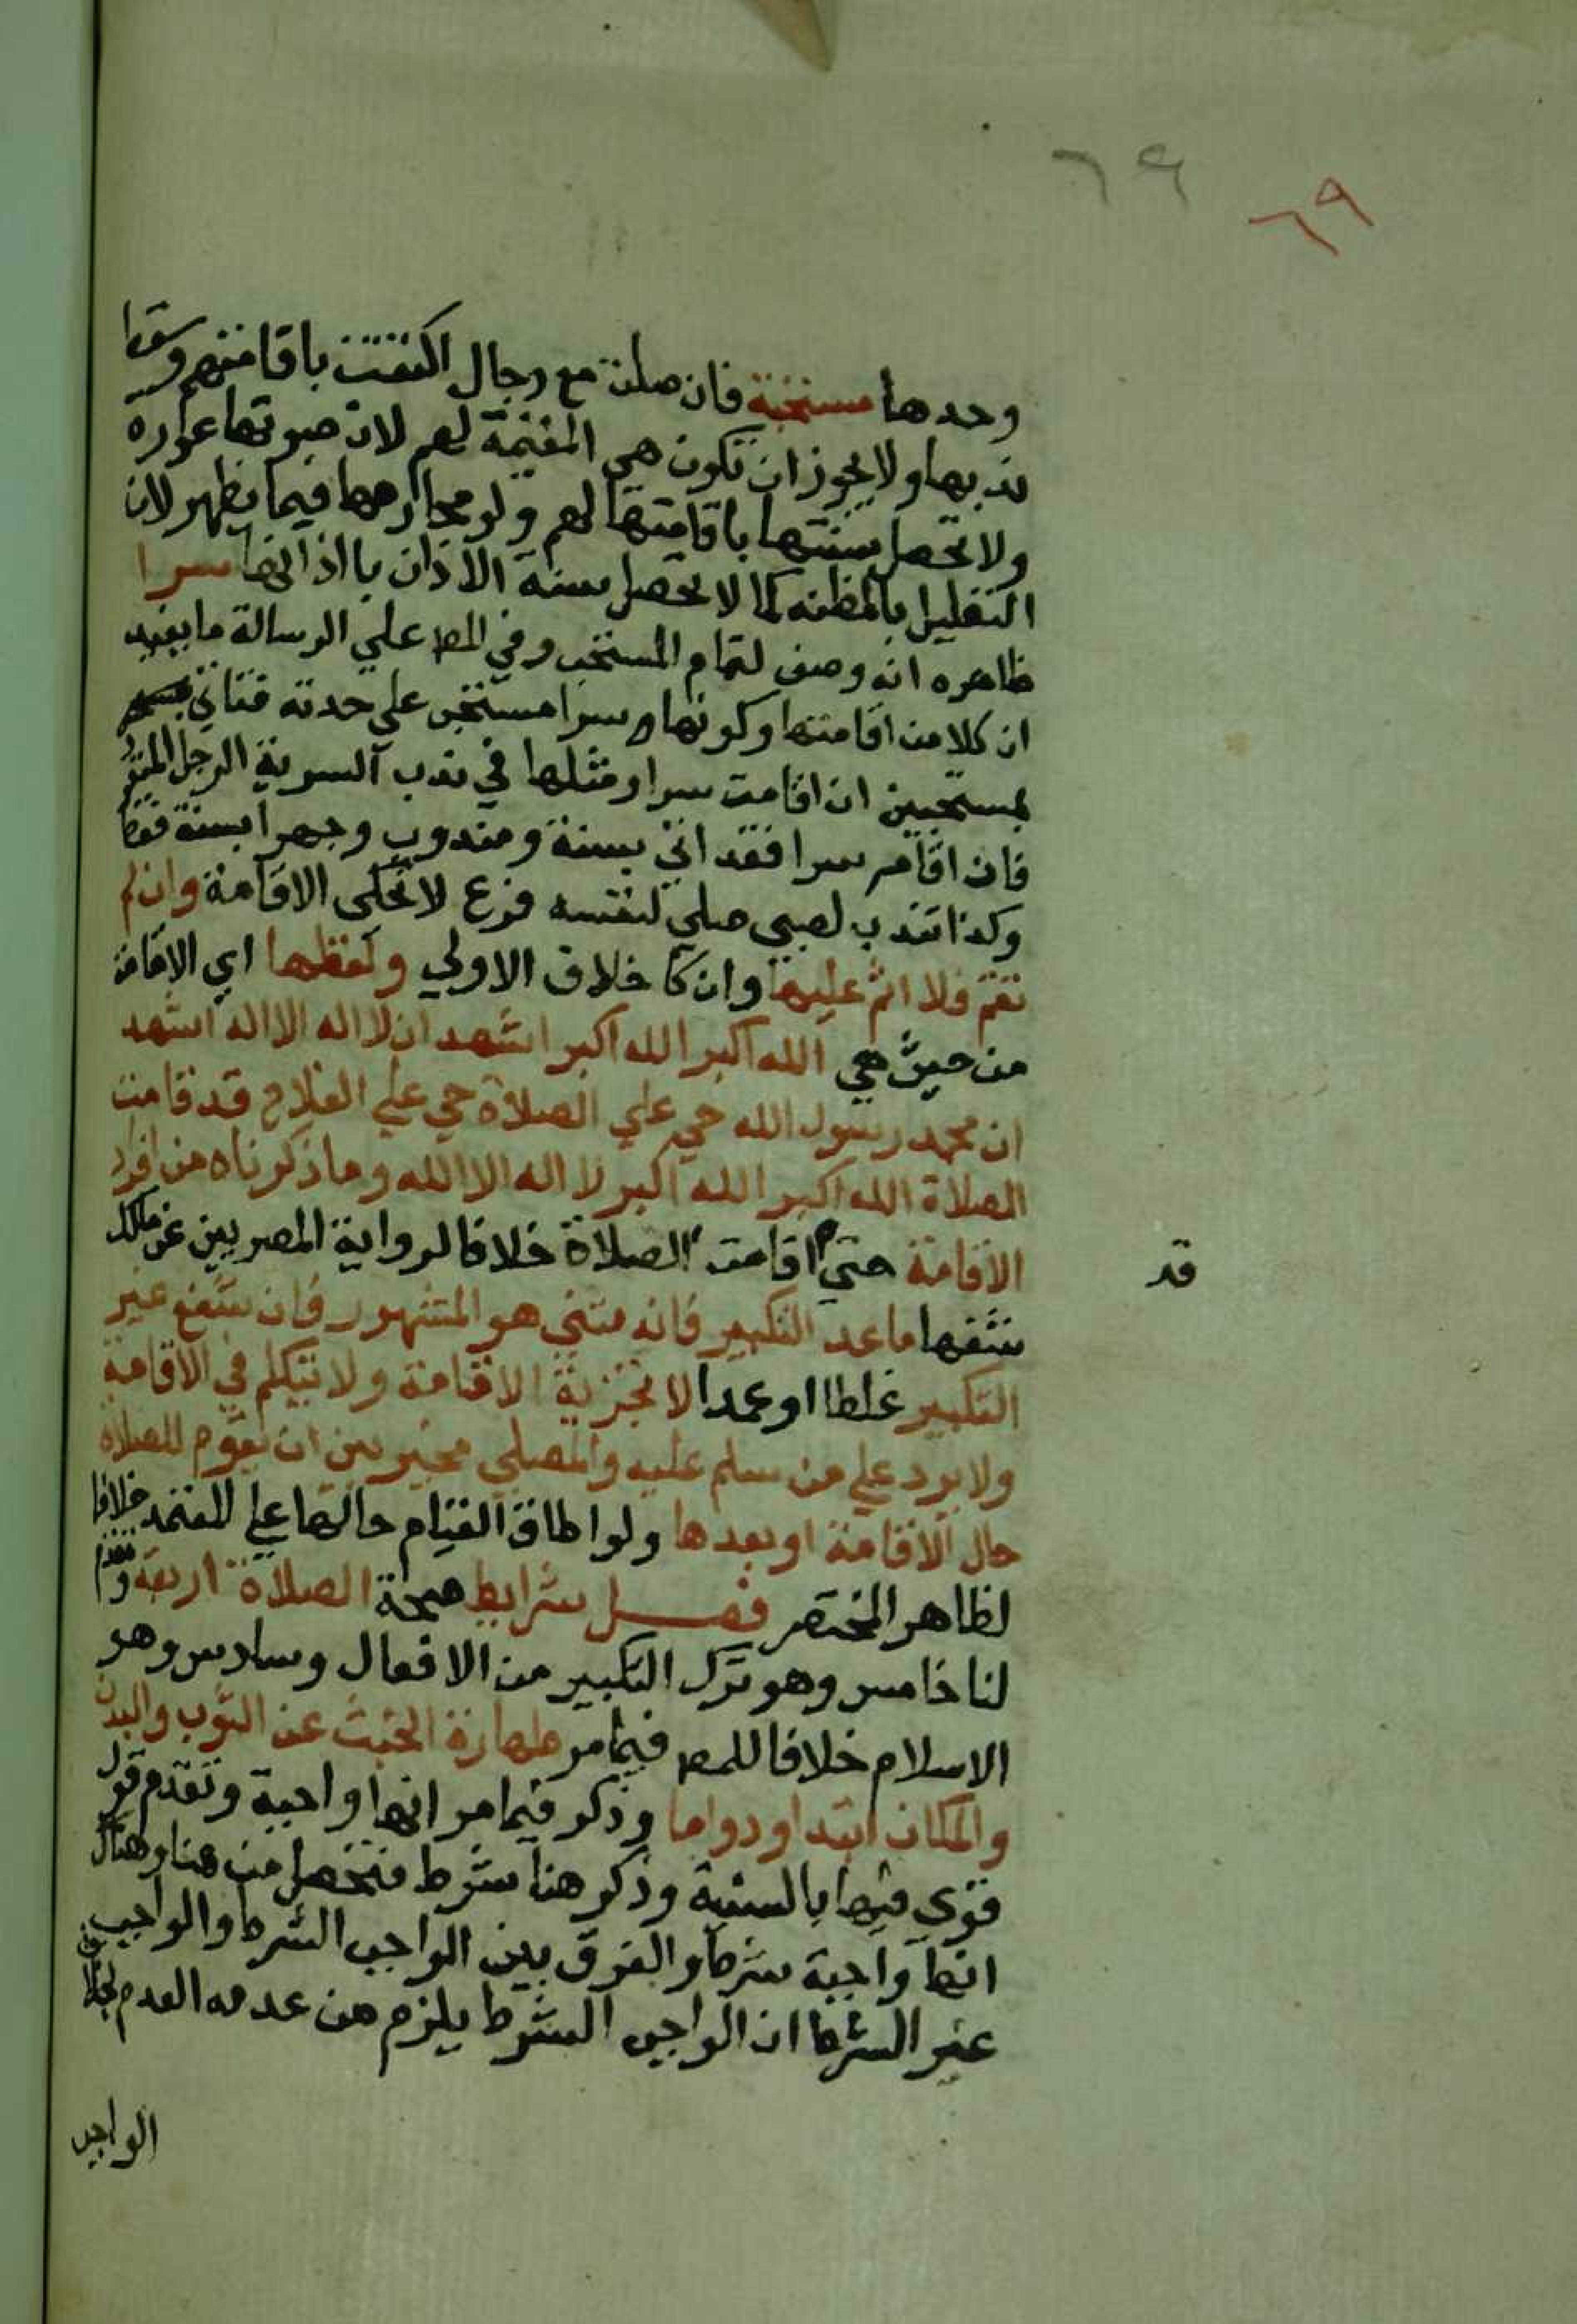 ٦٩ ٦٩
وحدها مستحبة فان صلت مع رجال اكتفت باقامتهم وسقط
ندبها ولا يجوز ان تكون هي المقيمة لهم لان صوتها عورة
ولا تحصل سنتها باقامتها لهم ولو محارمها فيما يظهر لان
التعليل بالمظنه كما لا تحصل سنة الاذان باذانها سرا
ظاهره انه وصف لتمام المستحب وفي المص علي الرسالة ما يفيد
ان كلا من اقامتها وكونها سرا مستحب على حدته فتاتي
بمستحبين ان اقامت سرا ومثلها في ندب السرية الرجل المنفرد
فان اقام سرا فقد اتي بسنة ومندوب وجهرا بسنة فقط
وكذا تندب لصبي صلى لنفسه فرع لا تحكى الاقامة وان لم
تقم فلا اثم عليها وان كا خلاف الاولي ولفظها اي الاقامة
من حيث هي الله اكبر الله اكبر اشهد ان لا اله الا اله اشهد
ان محمد رسول الله حي علي الصلاة حي علي الفلاح قد قامت
الصلاة الله اكبر الله اكبر لا اله الا الله وما ذكرناه من افراد
الاقامة حتي اقامت الصلاة خلافا لرواية المصريين عن مالك
قد
شفعها ما عد التكبير فانه مثني هو المشهور فان شفع غير
التكبير غلطا او عمدا لا تجزية الاقامة ولا يتكلم في الاقامة
ولا يرد علي من سلم عليه والمصلي مخير بين ان يقوم للصلاة
حال الاقامة او بعدها ولو اطاق القيام حالتها علي المعتمد خلافا
لظاهر المختصر فصل شرايط صحة الصلاة اربعة وتقدم
لنا خامس وهو ترك الكبير من الافعال وسادس وهو
الاسلام خلافا للمص فيما مر طهارة الخبث عن الثوب والبدن
والمكان ابتدا ودواما وذكر فيما مر انها واجبة وتقدم قول
قوي فيها بالسنية وذكر هنا شرط فتحصل من هنا وهناك
انها واجبة شرطا والفرق بين الواجب الشرط والواجب
غير الشرط ان الواجب الشرط يلزم من عدمه العدم بخلاف
الواجب